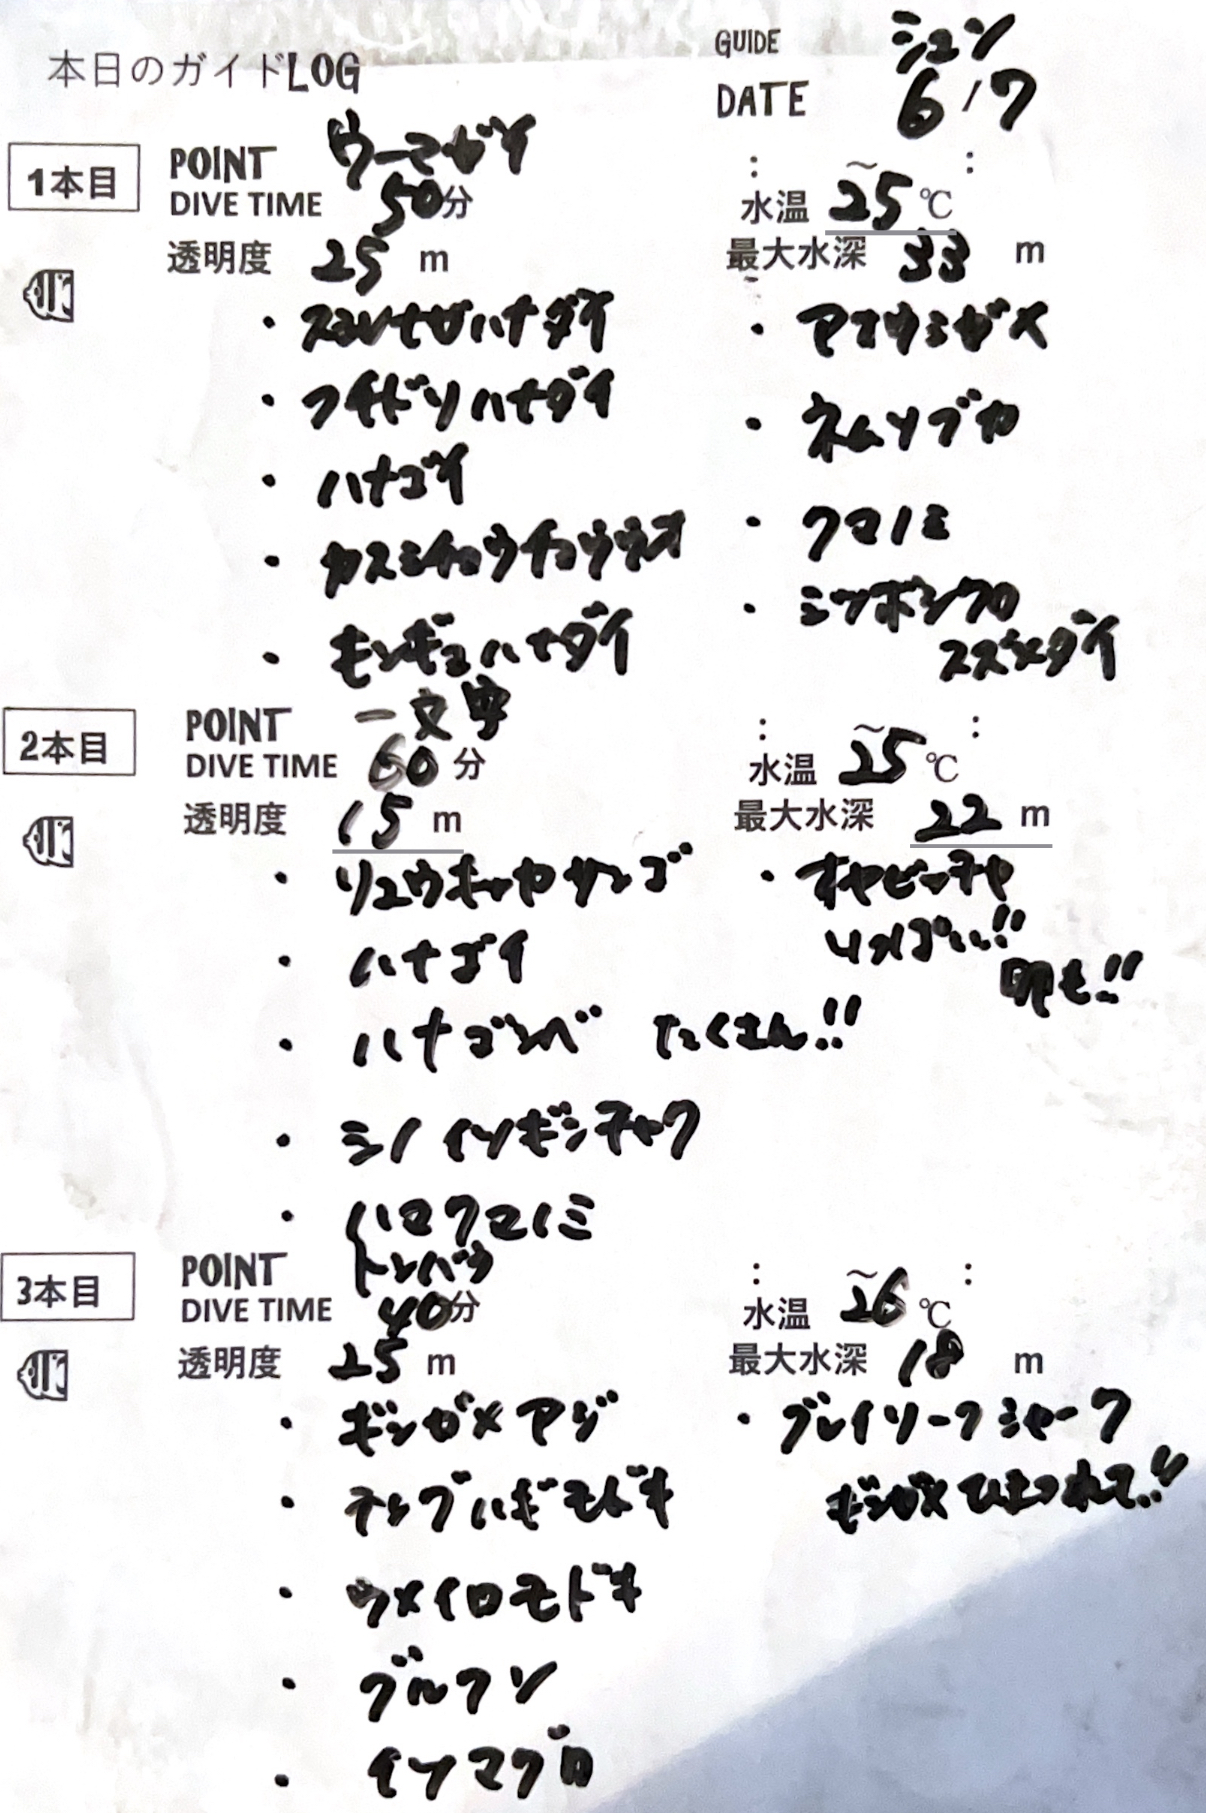 本日のガイドLOG
GUIDE シュン
DATE 6/7
1本目
POINT ウーマガイ
DIVE TIME 50分
: ~ :
水温 25℃
透明度 25 m
最大水深 33 m
・スミレナガハナダイ
・フチドリハナダイ
・ハナゴイ
・カスミチョウチョウウオ
・キンギョハナダイ
・アオウミガメ
・ネムリブカ
・クマノミ
・ミツボシクロ
スズメダイ
2本目
POINT 一文字
DIVE TIME 60分
: ~ :
水温 25℃
透明度 15 m
最大水深 22 m
・リュウキュウキッカサンゴ
・ハナゴイ
・ハナゴンベ たくさん!!
・シライトイソギンチャク
・ハマクマノミ
・オヤビッチャ
いっぱい!!
卵も!!
3本目
POINT トンバラ
DIVE TIME 40分
: ~ :
水温 26℃
透明度 25 m
最大水深 18 m
・ギンガメアジ
・テングハギモドキ
・ウメイロモドキ
・グルクン
・イソマグロ
・グレイリーフシャーク
ギンガメひきつれて!!